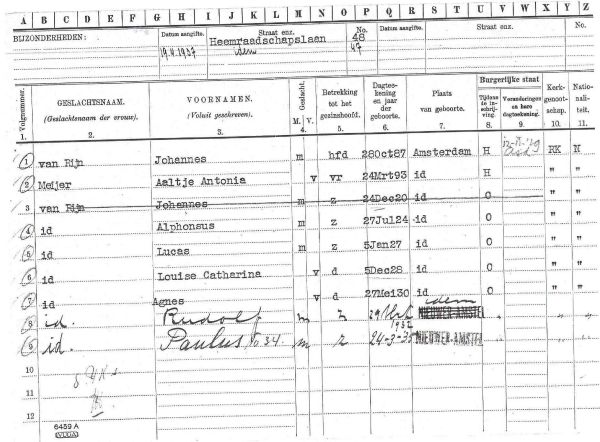 A B C D E F G H I J K L M N O P Q R S T U V W X Y Z
BIJZONDERHEDEN: Datum aangifte. Straat enz. No. Datum aangifte. Straat enz. No.
Heemraadschapslaan 48
19.4.1937 idem 47
Volgnummer. GESLACHTSNAAM. (Geslachtsnaam der vrouw.) VOORNAMEN. (Voluit geschreven.) Geslacht. M. V. Betrekking tot het gezinshoofd. Dagteekening en jaar der geboorte. Plaats van geboorte. Burgerlijke staat Tijdens de inschrijving. Veranderingen en hare dagteekening. Kerkgenootschap. Nationaliteit.
1. 2. 3. 4. 5. 6. 7. 8. 9. 10. 11.
1 van Rijn Johannes m hfd 28Oct87 Amsterdam H RK N
2 Meijer Aaltje Antonia v vr 24Mrt93 id H " "
3 van Rijn Johannes m z 24Dec20 id O
4 id Alphonsus m z 27Jul24 id O " "
5 id Lucas m z 5Jan27 id O " "
6 id Louise Catharina v d 5Dec28 id O " "
7 id Agnes v d 27Mei30 id O " "
8 id. Rudolf m z 1932 idem NIEUWER-AMSTEL " "
9 id. Paulus m z 24-3-35 NIEUWER-AMSTEL " "
10
11
12
6459 A
VUGA